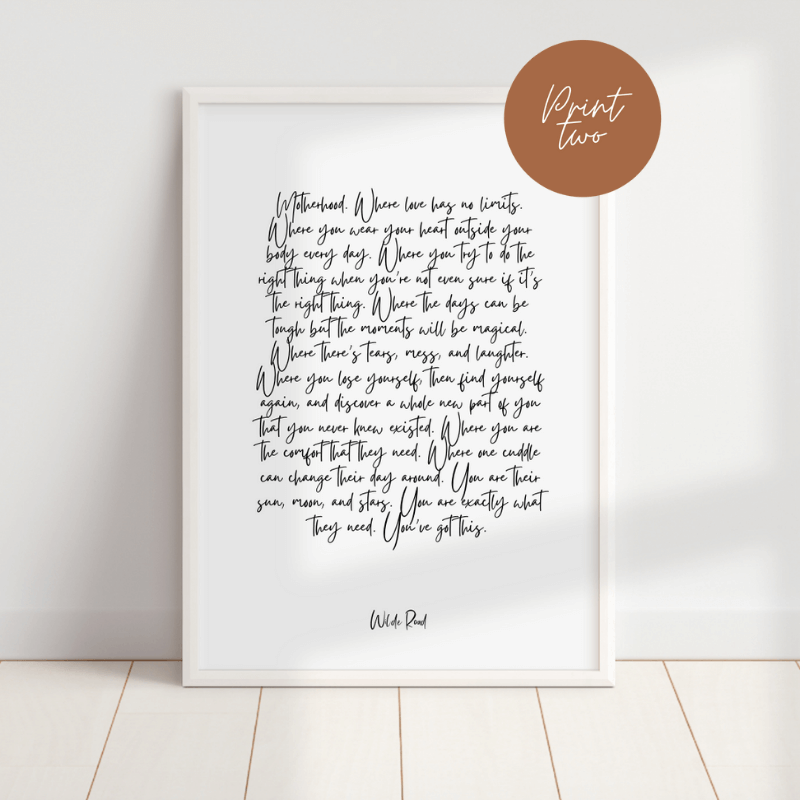 Print
two
Motherhood. Where love has no limits.
Where you wear your heart outside your
body every day. Where you try to do the
right thing when you're not even sure if it's
the right thing. Where the days can be
tough but the moments will be magical.
Where there's tears, mess, and laughter.
Where you lose yourself, then find yourself
again, and discover a whole new part of you
that you never knew existed. Where you are
the comfort that they need. Where one cuddle
can change their day around. You are their
sun, moon, and stars. You are exactly what
they need. You've got this.
Wilde Road